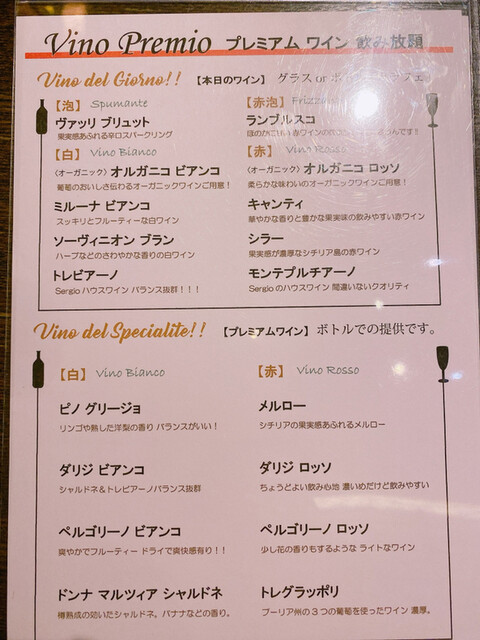 Vino Premio プレミアム ワイン 飲み放題
Vino del Giorno!! 【本日のワイン】 グラス or
【泡】 Spumante
ヴァッリ ブリュット
果実感あふれる辛口スパークリング
【白】 Vino Bianco
〈オーガニック〉 オルガニコ ビアンコ
葡萄のおいしさ伝わるオーガニックワインご用意!
ミルーナ ビアンコ
スッキリとフルーティーな白ワイン
ソーヴィニオン ブラン
ハーブなどのさわやかな香りの白ワイン
トレビアーノ
Sergio ハウスワイン バランス抜群!!!
【赤泡】
ランブルスコ
【赤】 Vino Rosso
〈オーガニック〉 オルガニコ ロッソ
柔らかな味わいのオーガニックワインご用意!
キャンティ
華やかな香りと豊かな果実味の飲みやすい赤ワイン
シラー
果実感が濃厚なシチリア島の赤ワイン
モンテプルチアーノ
Sergio のハウスワイン 間違いないクオリティ
Vino del Specialite!! 【プレミアムワイン】 ボトルでの提供です。
【白】 Vino Bianco
ピノ グリージョ
リンゴや熟した洋梨の香り バランスがいい!
ダリジ ビアンコ
シャルドネ&トレビアーノバランス抜群
ペルゴリーノ ビアンコ
爽やかでフルーティー ドライで爽快感有り!!
ドンナ マルツィア シャルドネ
樽熟成の効いたシャルドネ。バナナなどの香り。
【赤】 Vino Rosso
メルロー
シチリアの果実感あふれるメルロー
ダリジ ロッソ
ちょうどよい飲み心地 濃いめだけど飲みやすい
ペルゴリーノ ロッソ
少し花の香りもするような ライトなワイン
トレグラッポリ
プーリア州の3つの葡萄を使ったワイン 濃厚。